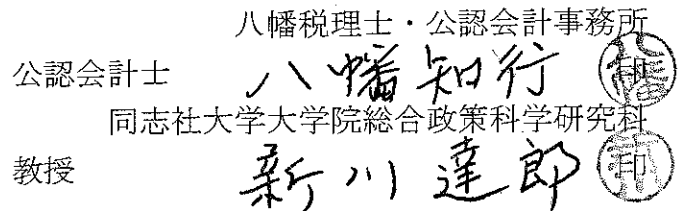 八幡税理士・公認会計事務所
公認会計士 八幡知行 印
同志社大学大学院総合政策科学研究科
教授 新川達郎 印